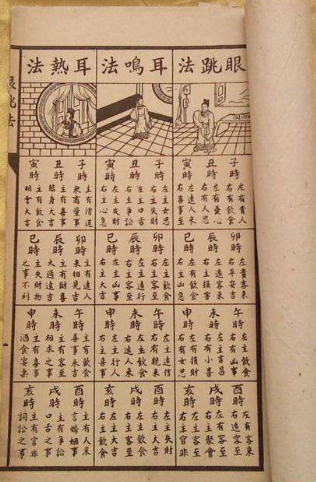 眼跳法
子時 左有貴人 右有飲食
丑時 左有憂心 右有人思
寅時 左遠人來 右喜事
卯時 左貴客來 右平安吉
辰時 左遠客來 右主損害
巳時 左有飲食 右主凶急
午時 左主飲食 右有凶事
未時 左主吉昌 右有小喜
申時 左有損財 右有女思
酉時 左有客來 右遠客至
戌時 左有客至 右主聚會
亥時 左主客至 右主官非
耳鳴法
子時 左主女思 右主失財
丑時 左主口舌 右主爭訟
寅時 左主失財 右主心急
卯時 左主飲食 右主客至
辰時 左主遠行 右主客至
巳時 左主凶事 右主大吉
午時 左主遠信 右有親來
未時 左主飲食 右主客來
申時 左主行人 右主喜事
酉時 左主失財 右主大吉
戌時 左主飲食 右主客至
亥時 左主大吉 右主飲食
耳熱法
子時 主有僧道來商量事
丑時 主有喜事臨身大吉
寅時 主有飲食相會大吉
卯時 主有遠人來相見吉
辰時 主有財喜大通達吉
巳時 主失財物之事不利
午時 主有飲食喜事來吉
未時 主有客至相求之事
申時 主有喜事酒食客樂
酉時 主有人來言婚姻事
戌時 主有爭訟口舌之事
亥時 主有官非詞訟之事
眼跳法